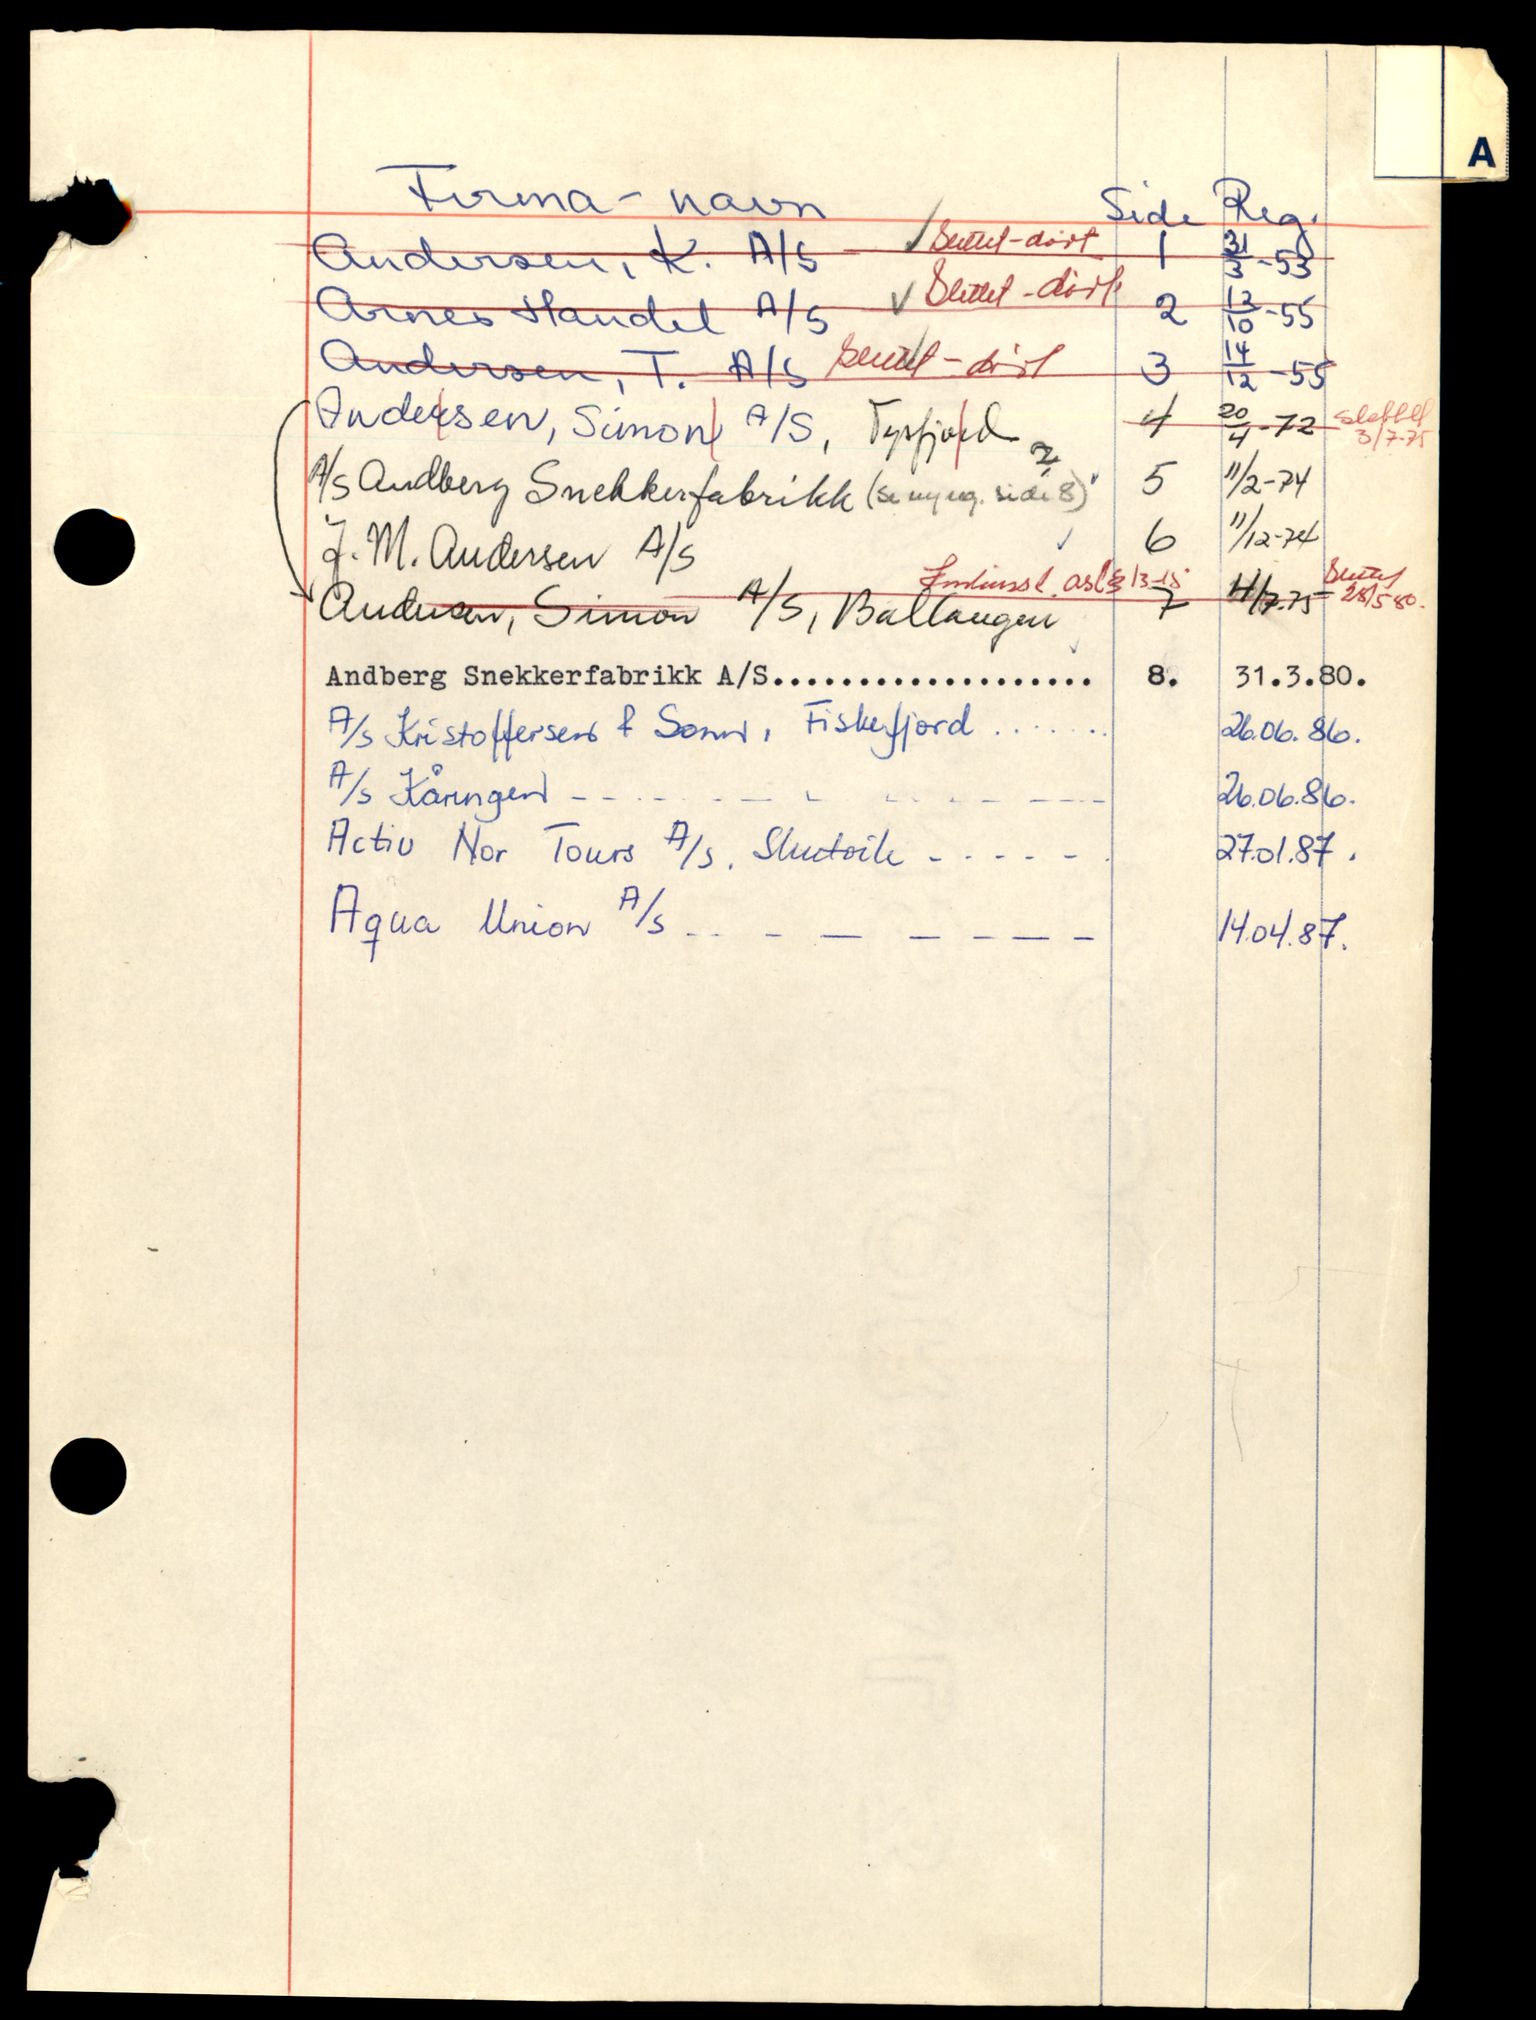 A
Firma-navn Side Reg.
Andersen, K. A/S Slettet-dødt 1 31/3-53
Arnes Handel A/S Slettet-dødt 2 12/10-55
Andersen, T. A/S Slettet-dødt 3 14/12-55
Andersen, Simon A/S, Tysfjord 4 20/4-72 slettet 3/7-75
A/S Andberg Snekkerfabrikk (se ny reg. side 8) 5 11/2-74
J. M. Andersen A/S 6 11/12-74
Andersen, Simon A/S, Ballangen 7 11/7-75 Slettet 28/5 80.
Andberg Snekkerfabrikk A/S................... 8. 31.3.80.
A/S Kristoffersen & Sønn, Fiskefjord ....... 26.06.86.
A/S Kåringen 26.06.86.
Activ Nor Tours A/S. 27.01.87.
Aqua Union A/S 14.04.87.